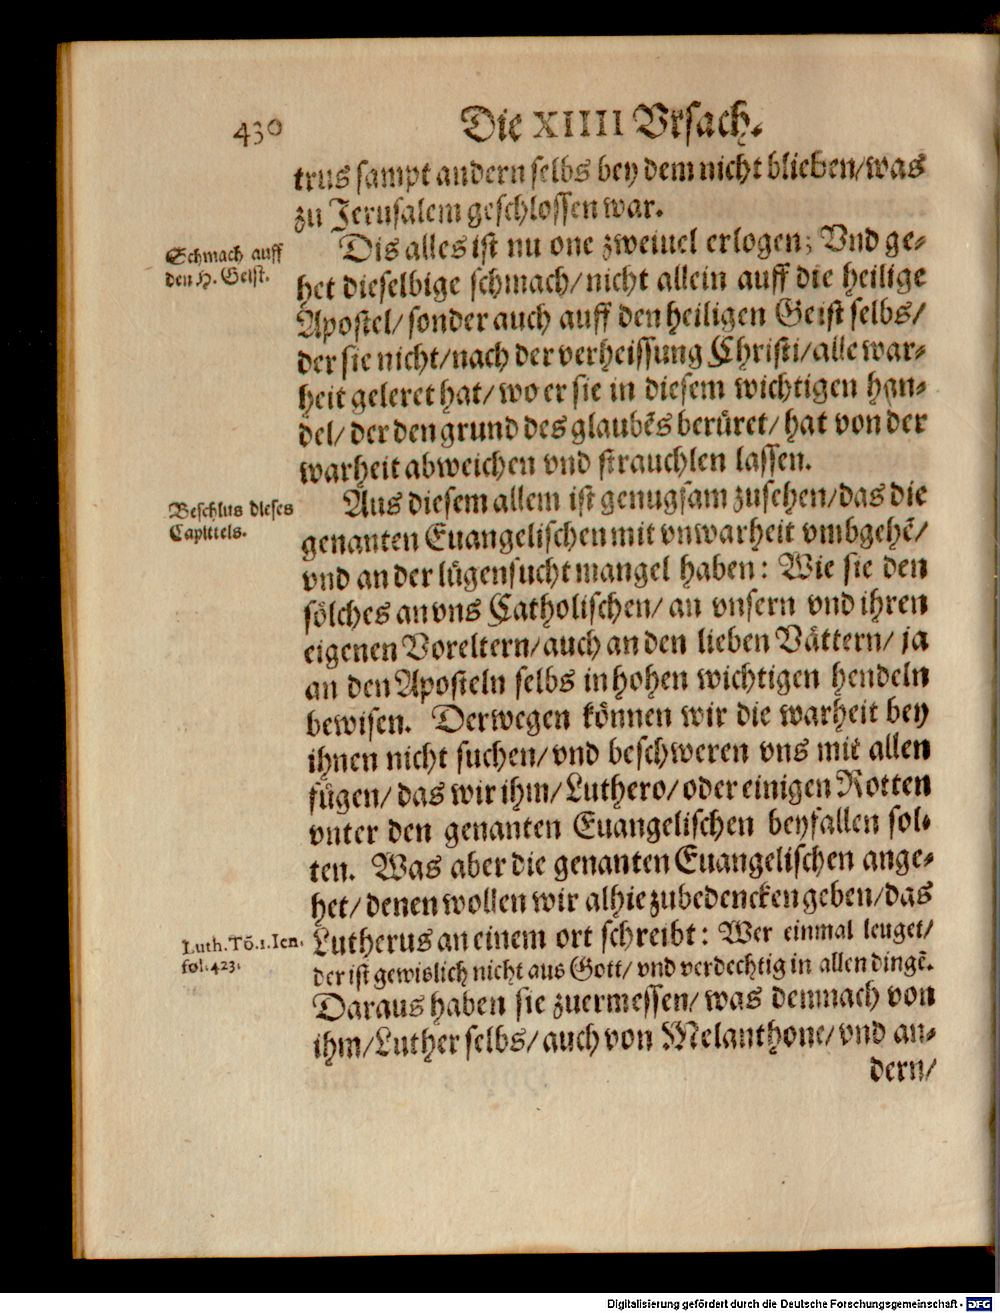 430 Die XIIII Vrsach.
trus sampt andern selbs bey dem nicht blieben/was
zu Jerusalem geschlossen war.
Schmach auff
den H. Geist.
Dis alles ist nu one zweiuel erlogen; Vnd ge-
het dieselbige schmach/nicht allein auff die heilige
Apostel/sonder auch auff den heiligen Geist selbs/
der sie nicht/nach der verheissung Christi/alle war-
heit geleret hat/wo er sie in diesem wichtigen han-
del/der den grund des glaubẽs berüret/hat von der
warheit abweichen vnd strauchlen lassen.
Beschlus dieses
Capittels.
Aus diesem allem ist genugsam zusehen/das die
genanten Euangelischen mit vnwarheit vmbgehẽ/
vnd an der lügensucht mangel haben: Wie sie den
sölches an vns Catholischen/an vnsern vnd ihren
eigenen Voreltern/auch an den lieben Vättern/ja
an den Aposteln selbs in hohen wichtigen hendeln
bewisen. Derwegen können wir die warheit bey
ihnen nicht suchen/vnd beschweren vns mit allen
fügen/das wir ihm/Luthero/oder einigen Rotten
vnter den genanten Euangelischen beyfallen sol-
ten. Was aber die genanten Euangelischen ange-
het/denen wollen wir alhie zubedencken geben/das
Luth. Tõ. 1. Ien.
fol. 423.
Lutherus an einem ort schreibt: Wer einmal leuget/
der ist gewislich nicht aus Gott/vnd verdechtig in allen dingẽ.
Daraus haben sie zuermessen/was demnach von
ihm/Luther selbs/auch von Melanthone/vnd an-
dern/
Digitalisierung gefördert durch die Deutsche Forschungsgemeinschaft - DFG